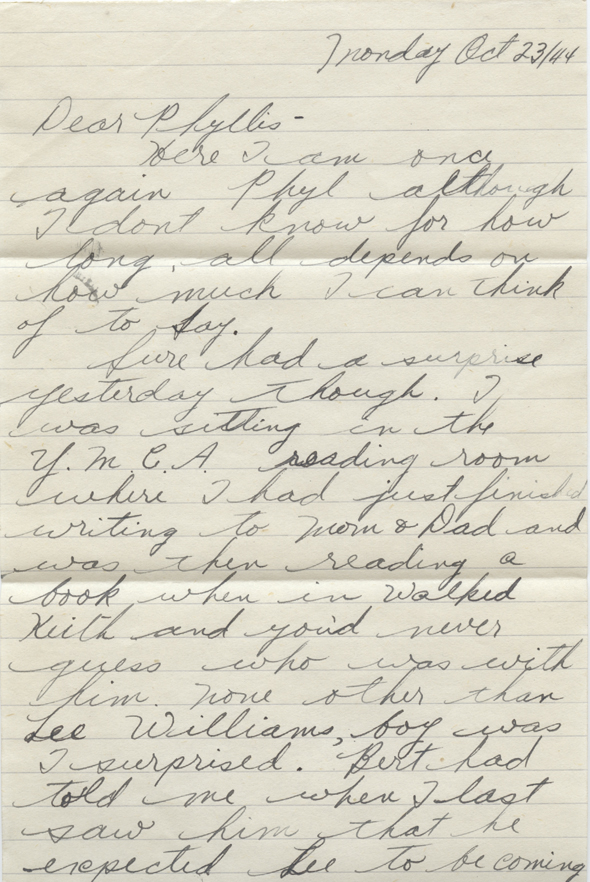 Monday Oct 23/44
Dear Phyllis-
Here I am once
again Phyl although
I dont know for how
long, all depends on
how much I can think
of to say.
Sure had a surprise
yesterday though. I
was sitting in the
Y.M.C.A. reading room
where I had just finished
writing to Mom & Dad and
was then reading a
book when in walked
Keith and you'd never
guess who was with
him. None other than
Lee Williams, boy was
I surprised. Bert had
told me when I last
saw him that he
expected Lee to be coming